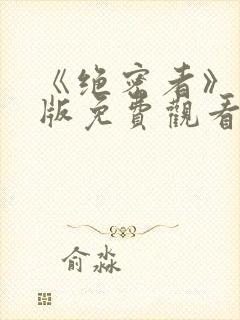 《绝密者》
版免費觀看
俞淼